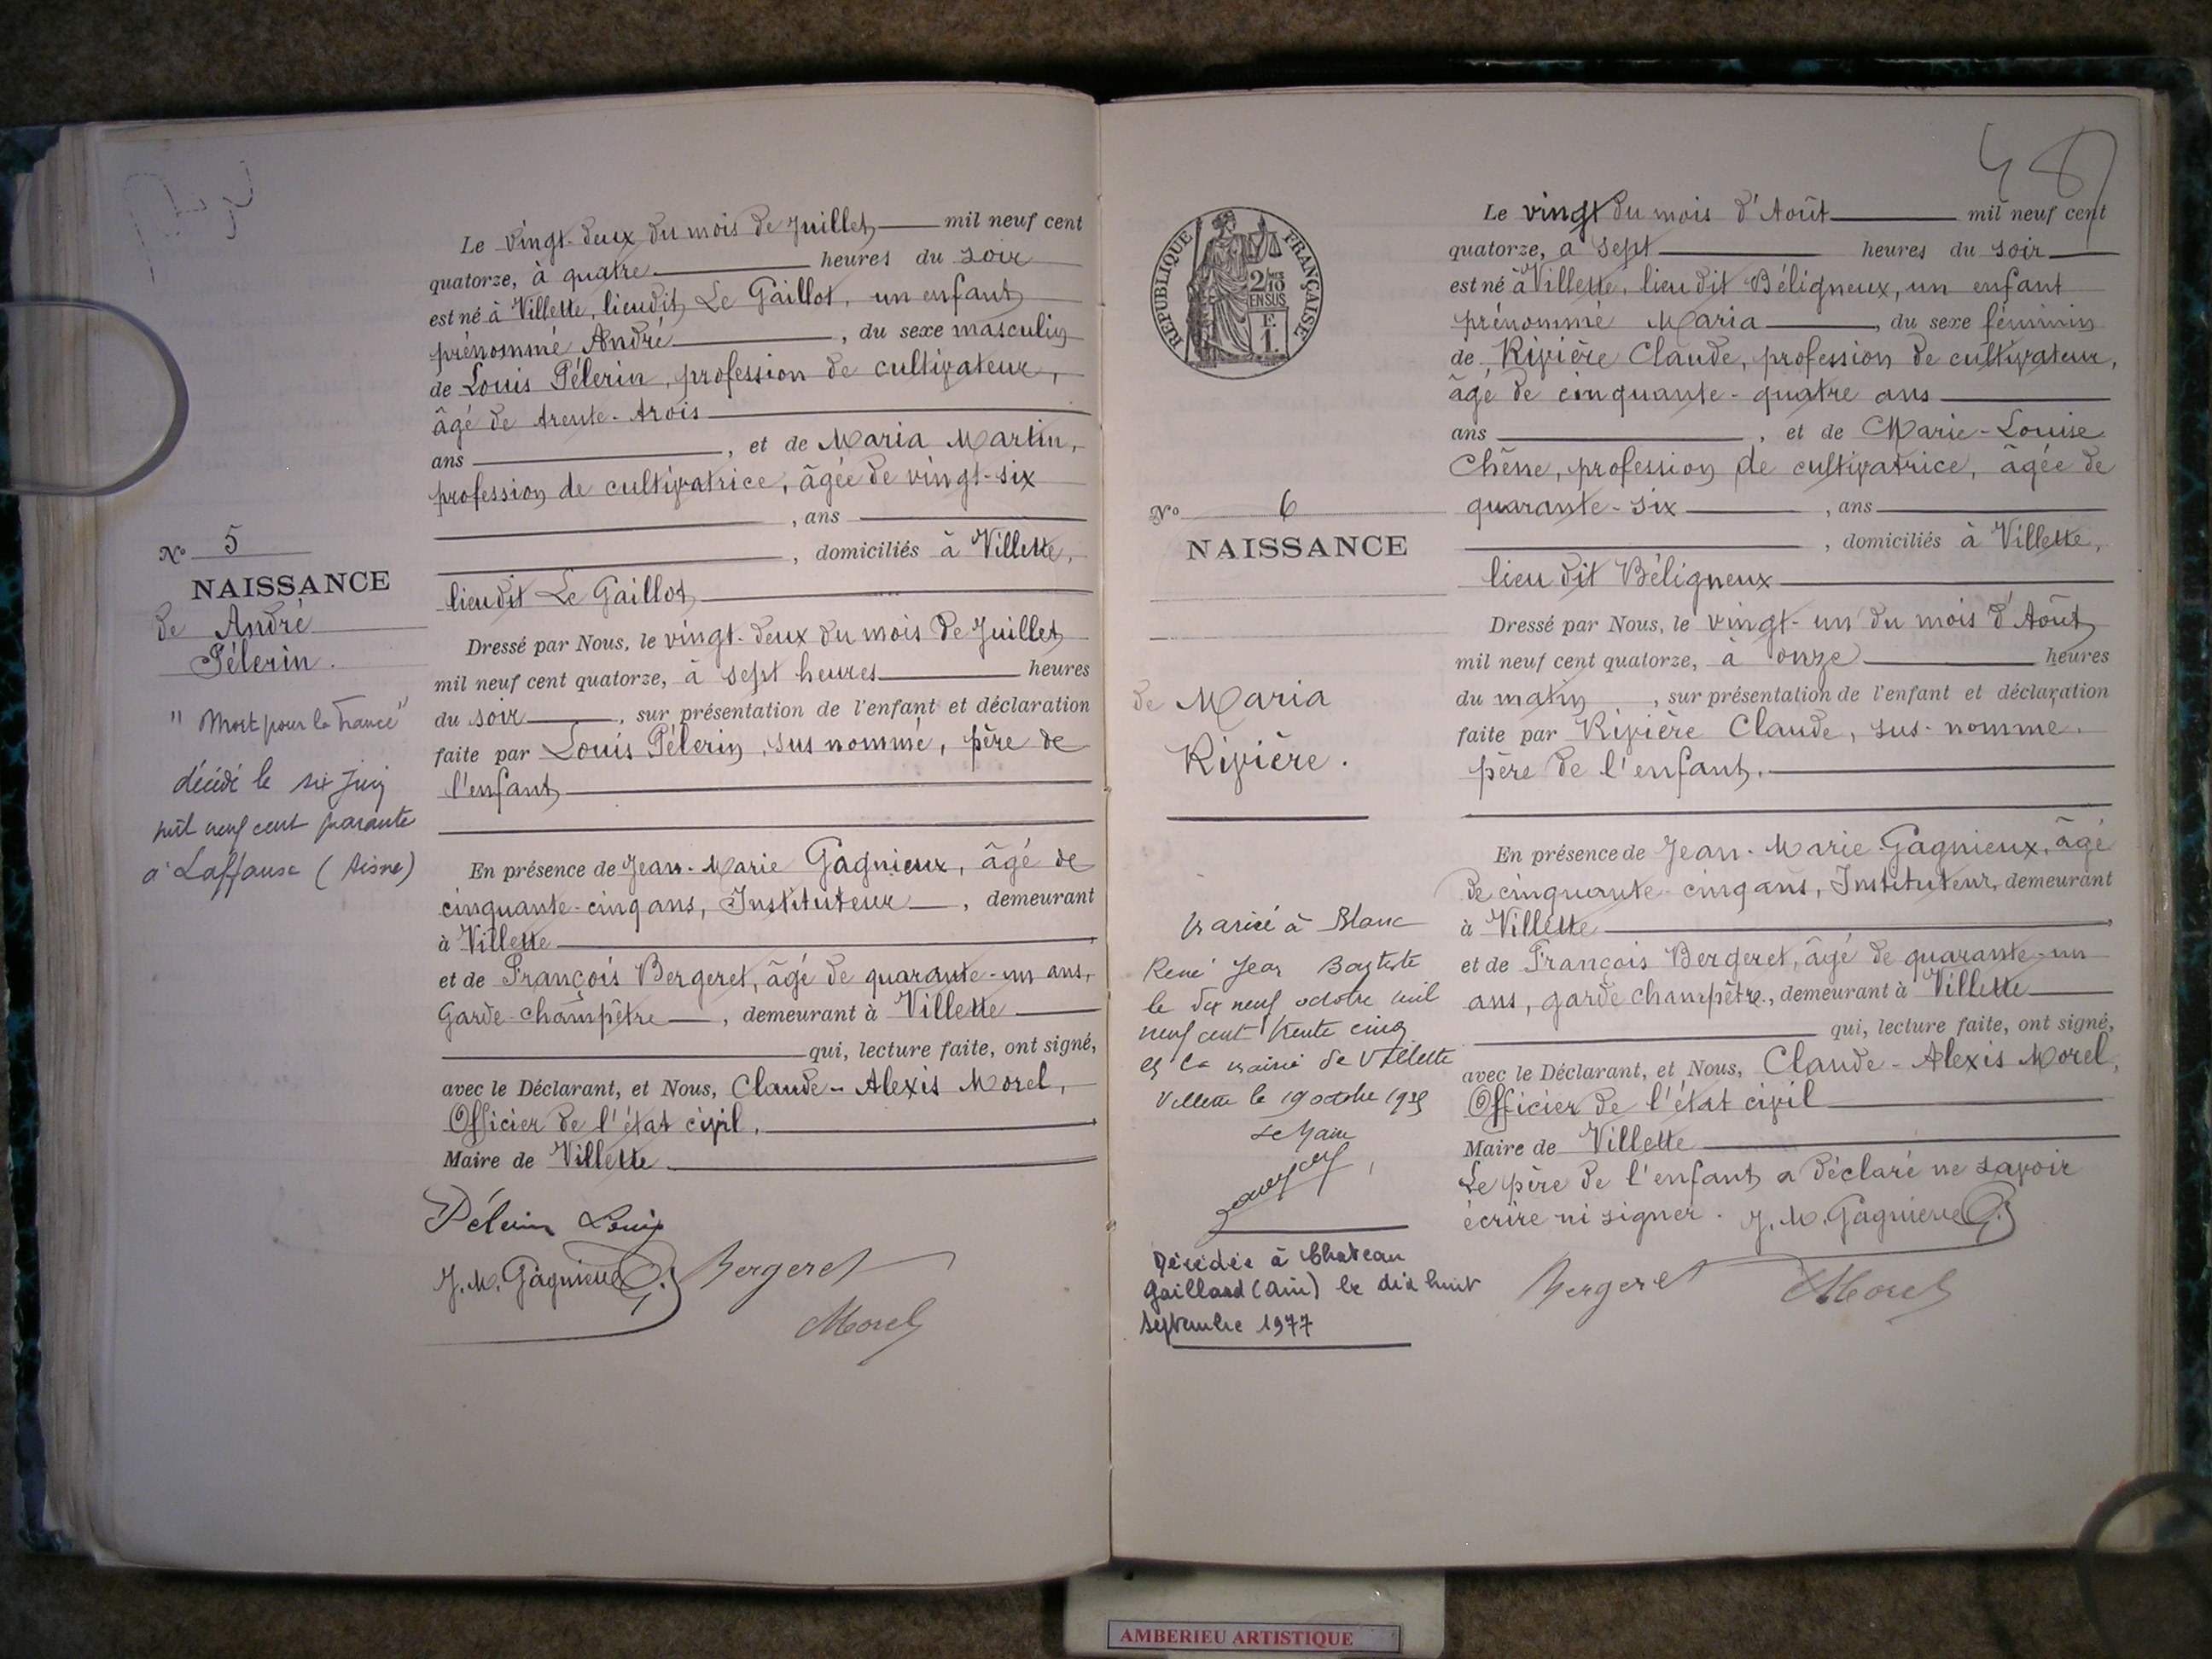 Le vingt-deux du mois de Juillet mil neuf cent
quatorze, à quatre heures du soir
est né à Villette, lieudit Le Gaillot, un enfant
prénommé André, du sexe masculin
de Louis Pélerin, profession de cultivateur,
âgé de trente-trois
ans, et de Maria Martin,
profession de cultivatrice, âgée de vingt-six
, ans
, domiciliés à Villette,
lieudit Le Gaillot
No 5
NAISSANCE
de André
Pélerin.
"Mort pour la France"
décédé le six Juin
mil neuf cent quarante
à Laffaux (Aisne)
Dressé par Nous, le vingt-deux du mois de Juillet
mil neuf cent quatorze, à sept heures heures
du soir, sur présentation de l'enfant et déclaration
faite par Louis Pélerin, sus nommé, père de
l'enfant
En présence de Jean-Marie Gagnieux, âgé de
cinquante-cinq ans, Instituteur, demeurant
à Villette
et de François Bergeret, âgé de quarante-un ans,
Garde-champêtre, demeurant à Villette
qui, lecture faite, ont signé,
avec le Déclarant, et Nous, Claude-Alexis Morel,
Officier de l'état civil,
Maire de Villette
Pélerin Louis
J. M. Gagnieux Bergeret
Morel
48
REPUBLIQUE FRANÇAISE
2/10 EN SUS
Le vingt du mois d'Août mil neuf cent
quatorze, à sept heures du soir
est né à Villette, lieu dit Béligneux, un enfant
prénommé Maria, du sexe féminin
de Rivière Claude, profession de cultivateur,
âgé de cinquante-quatre ans
ans, et de Marie-Louise
Chêne, profession de cultivatrice, âgée de
quarante-six, ans
, domiciliés à Villette,
lieu dit Béligneux
No 6
NAISSANCE
de Maria
Rivière.
Mariée à Blanc
René Jean Baptiste
le dix neuf octobre mil
neuf cent trente cinq
en la mairie de Villette
Villette le 19 octobre 1935
Le Maire
Décédée à Chateau
Gaillard (Ain) le dix huit
Septembre 1977
Dressé par Nous, le vingt-un du mois d'Août
mil neuf cent quatorze, à onze heures
du matin, sur présentation de l'enfant et déclaration
faite par Rivière Claude, sus-nommé,
père de l'enfant.
En présence de Jean-Marie Gagnieux, âgé
de cinquante-cinq ans, Instituteur, demeurant
à Villette
et de François Bergeret, âgé de quarante-un
ans, garde champêtre, demeurant à Villette
qui, lecture faite, ont signé,
avec le Déclarant, et Nous, Claude-Alexis Morel,
Officier de l'état civil
Maire de Villette
Le père de l'enfant a déclaré ne savoir
écrire ni signer. J. M. Gagnieux
Bergeret Morel
AMBERIEU ARTISTIQUE